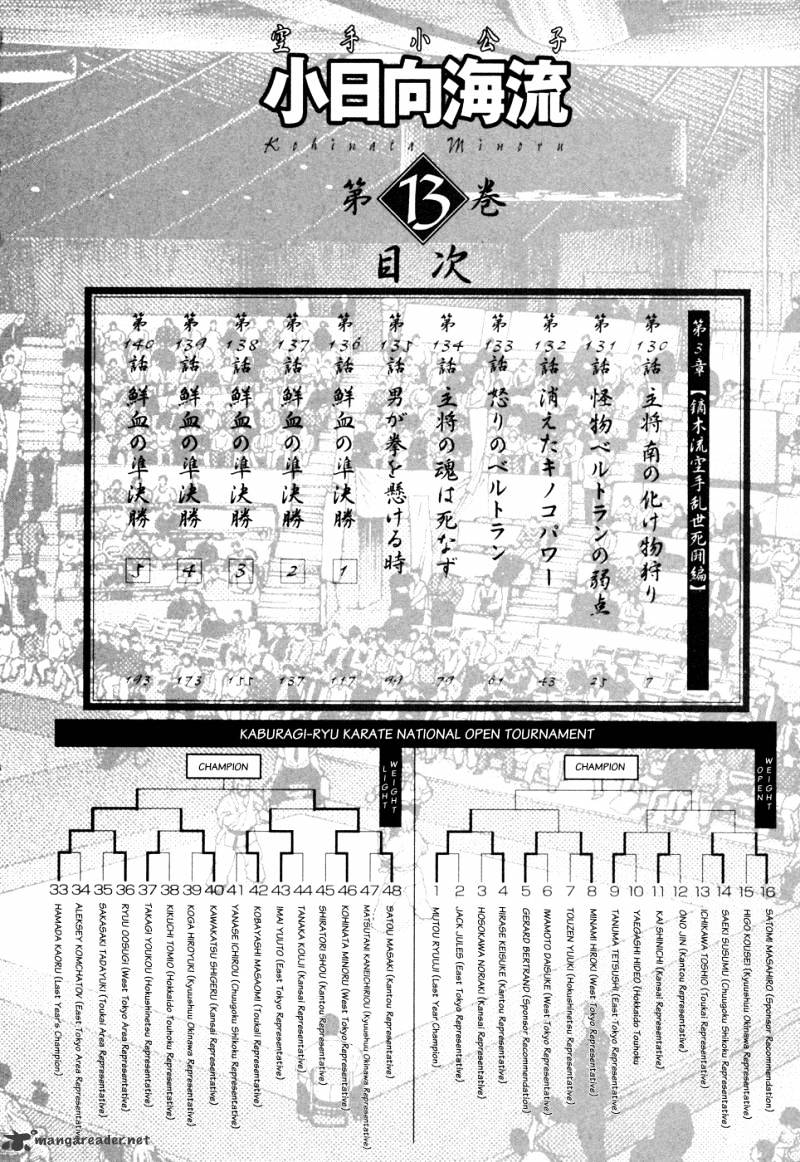 空手小公子
小日向海流
Kohinata Minoru
第13巻
目次
第3章【鏑木流空手乱世死闘編】
第130話 主将 南の化け物狩り 7
第131話 怪物ベルトランの弱点 25
第132話 消えたキノコパワー 43
第133話 怒りのベルトラン 61
第134話 主将の魂は死なず 79
第135話 男が拳を懸ける時
第136話 鮮血の準決勝 1 117
第137話 鮮血の準決勝 2 137
第138話 鮮血の準決勝 3 155
第139話 鮮血の準決勝 4 173
第140話 鮮血の準決勝 5 193
KABURAGI-RYU KARATE NATIONAL OPEN TOURNAMENT
CHAMPION
LIGHT WEIGHT
33 HAMADA KAORU (Last Year's Champion)
34 ALEKSEY KONCHATOV (East Tokyo Area Representative)
35 SAKASAKI TADAYUKI (Toukai Area Representative)
36 RYUU OOSUGI (West Tokyo Area Representative)
37 TAKAGI YOUKOU (Hokushinetsu Representative)
38 KIKUCHI TOMIO (Hokkaido Touhoku Representative)
39 KOGA HIROYUKI (Kyuushuu Okinawa Representative)
40 KAWAKATSU SHIGERU (Kansai Representative)
41 YANASE ICHIROU (Chuugoku Shikoku Representative)
42 KOBAYASHI MASAOMI (Toukai Representative)
43 IMAI YUUTO (East Tokyo Representative)
44 TANAKA KOUJI (Kansai Representative)
45 SHIRATORI SHOU (Kantou Representative)
46 KOHINATA MINORU (West Tokyo Representative)
47 MATSUTANI KANEICHIROU (Kyuushuu Okinawa Representative)
48 SATOU MASAKI (Kantou Representative)
CHAMPION
OPEN WEIGHT
1 MUTOU RYUUJI (Last Year Champion)
2 JACK JULES (East Tokyo Representative)
3 HOSOKAWA NORIAKI (Kansai Representative)
4 HIRASE KEISUKE (Kantou Representative)
5 GERARD BERTRAND (Sponsor Recommendation)
6 IWAMOTO DAISUKE (West Tokyo Representative)
7 TOUZEN YUUKI (Hokushinetsu Representative)
8 MINAMI HIROKI (West Tokyo Representative)
9 TANUMA TETSUSHI (East Tokyo Representative)
10 YAEGASHI HIDEO (Hokkaido Touhoku
11 KAI SHINICHI (Kansai Representative)
12 ONIO JIN (Kantou Representative)
13 ICHIKAWA TOSHIO (Toukai Representative)
14 SAEKI SUSUMU (Chuugoku Shikoku Representative)
15 HIGO KOUSEI (Kyuushuu Okinawa Representative)
16 SATOMI MASAHIRO (Sponsor Recommendation)
mangareader.net